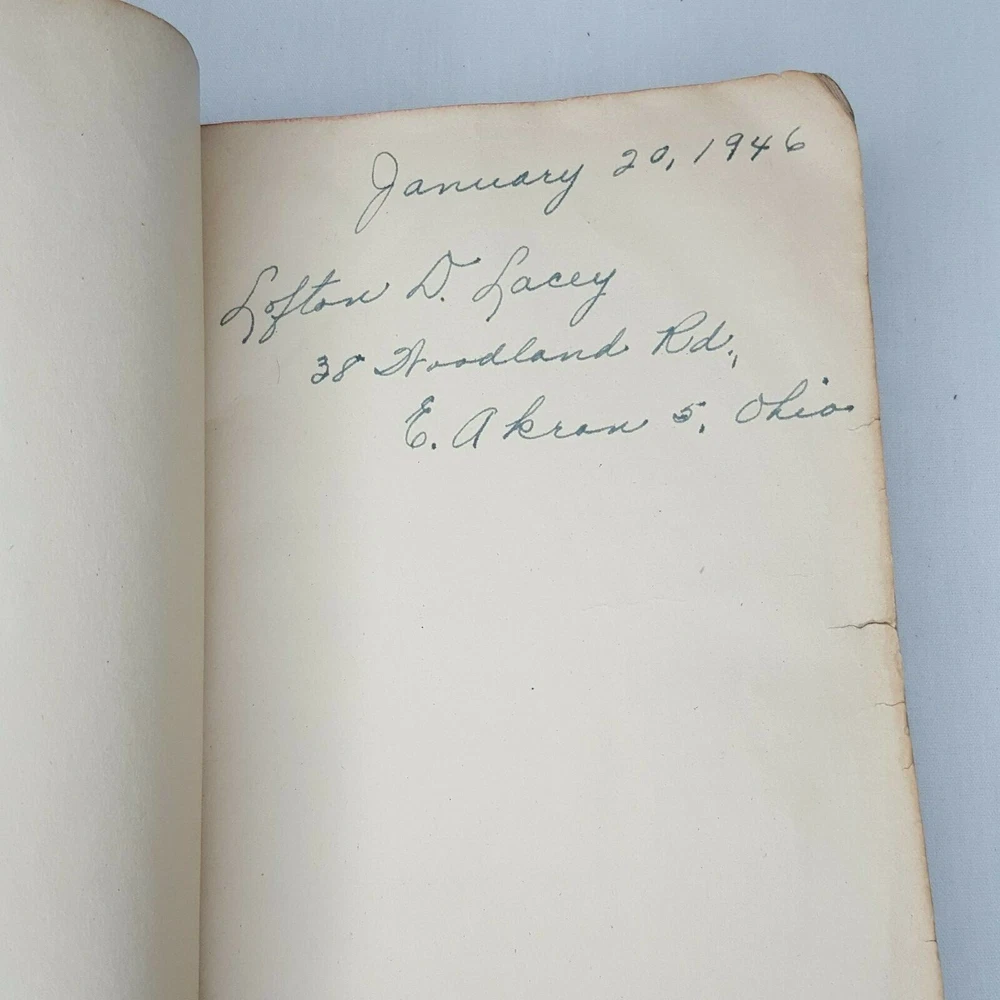 January 20, 1946
Lofton D. Lacey
38 Woodland Rd.,
E. Akron 5, Ohio